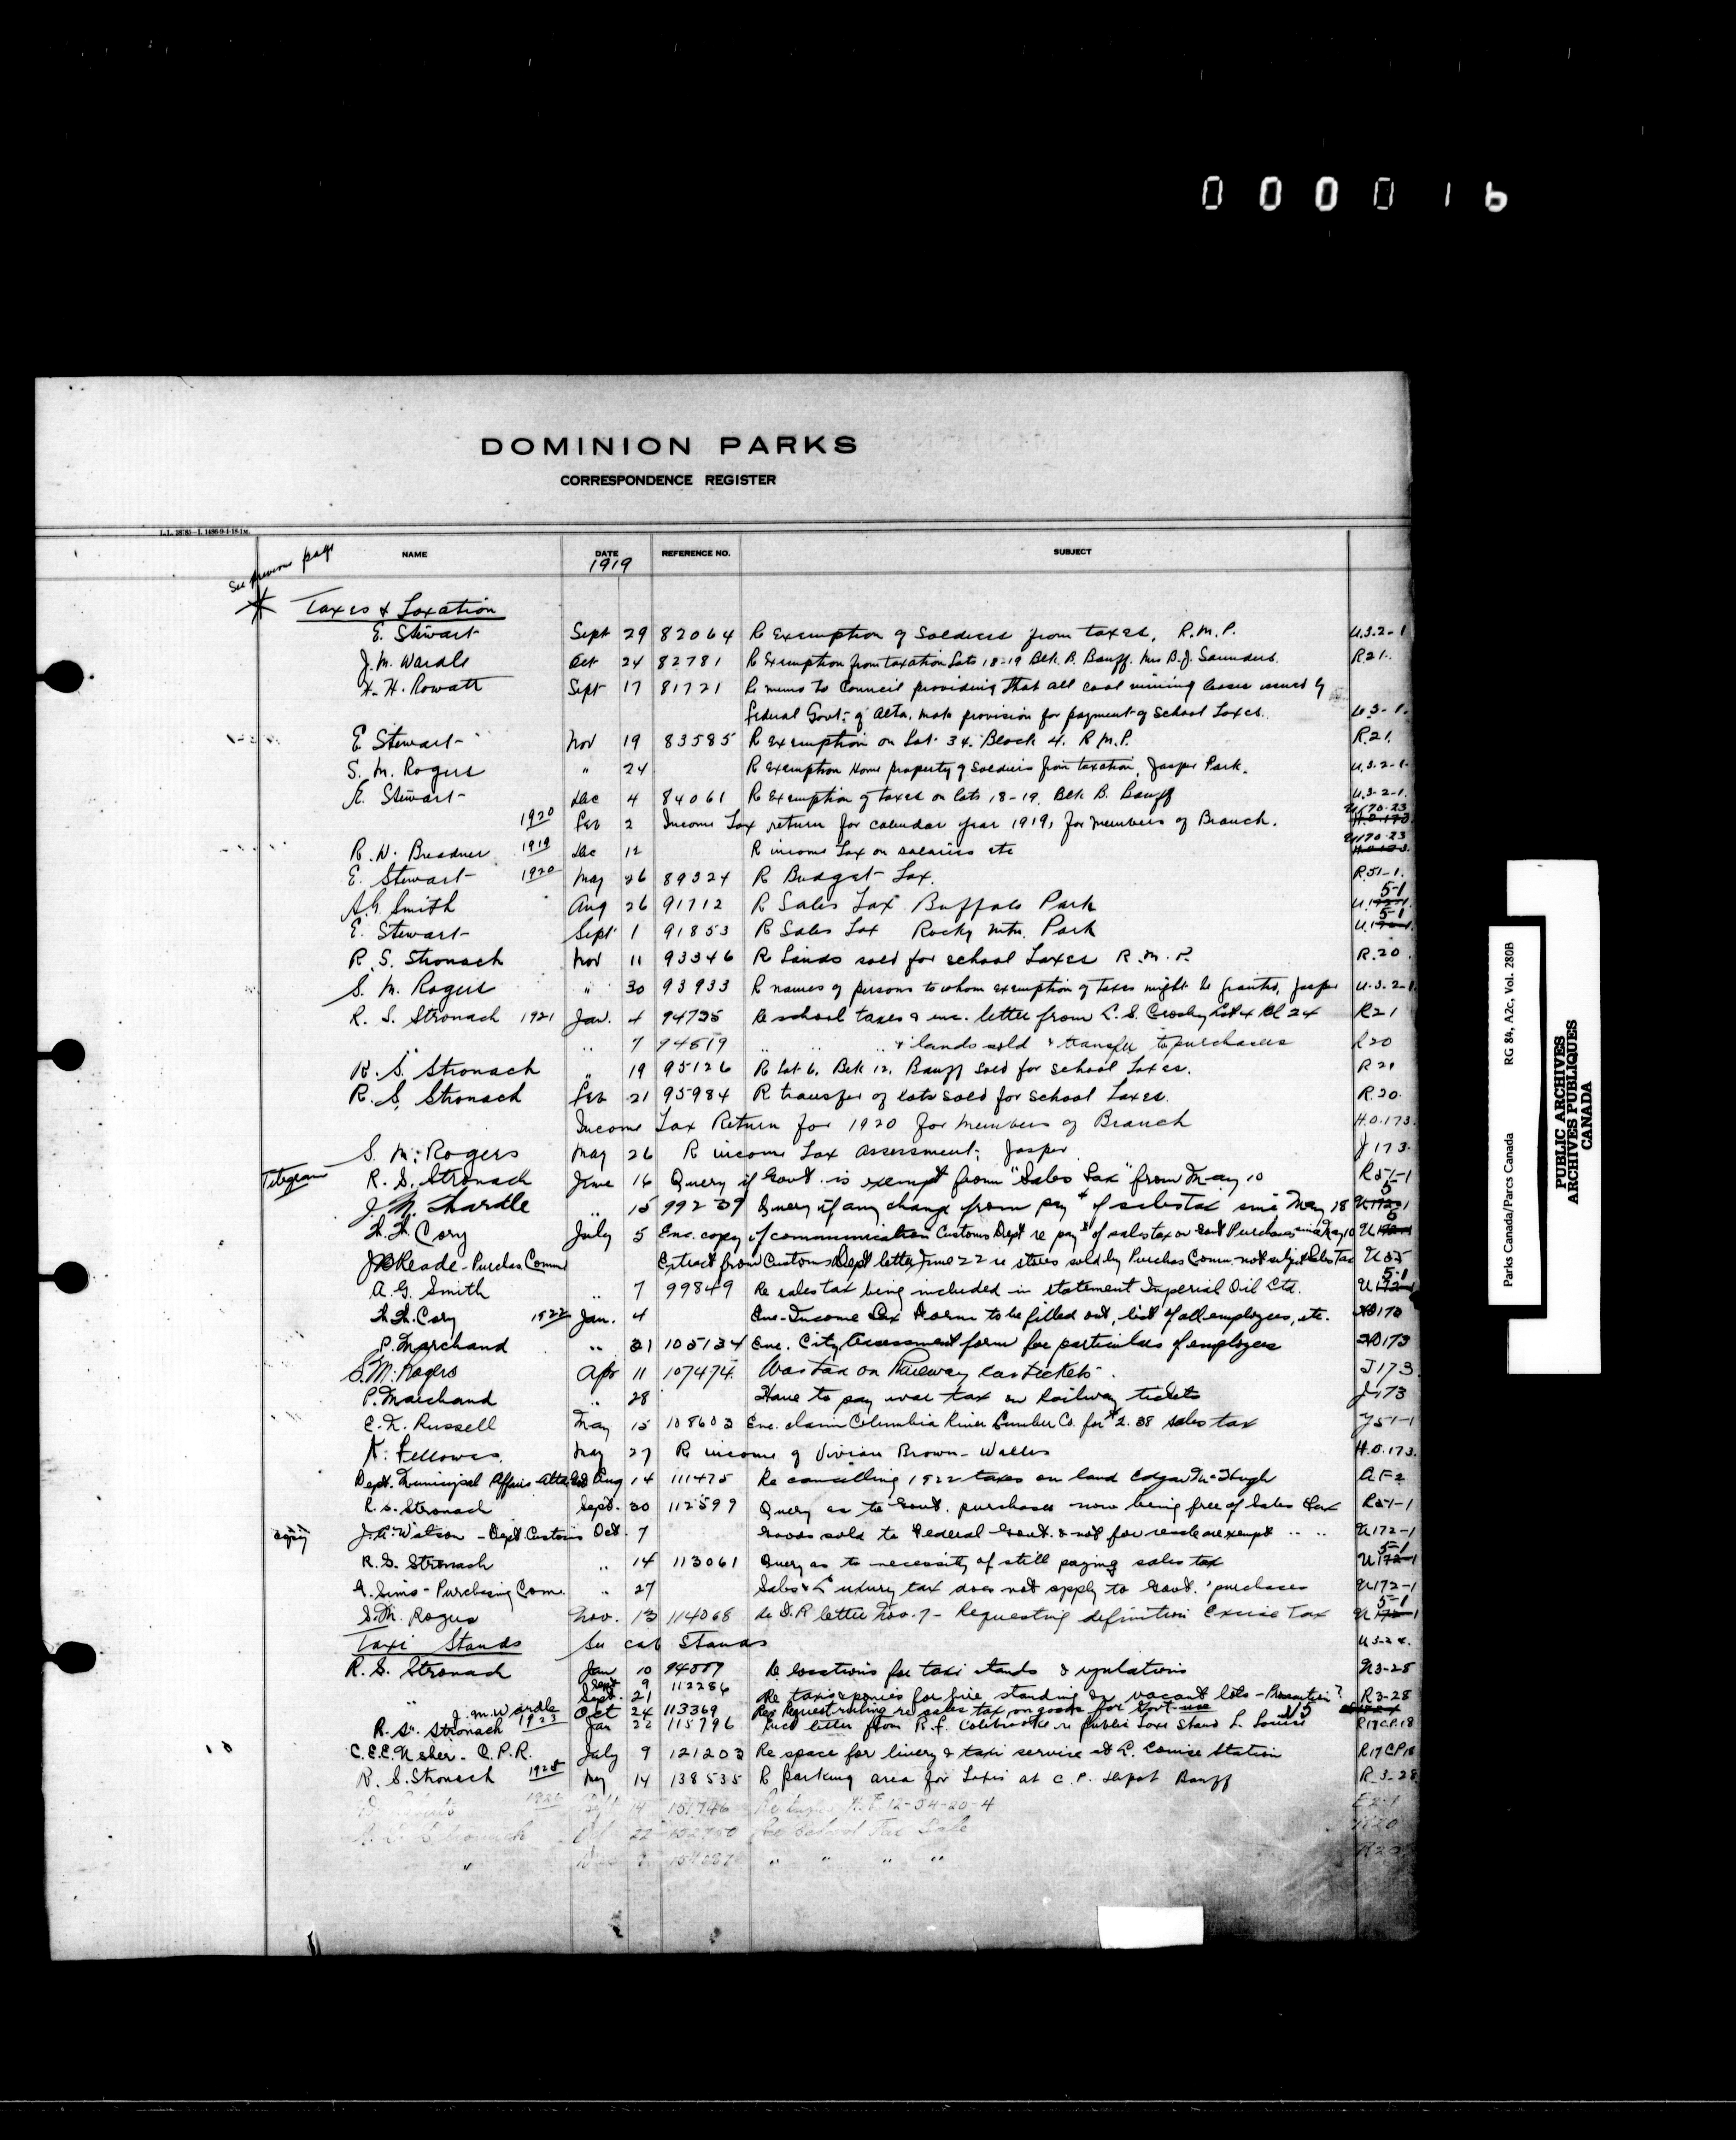 000016
DOMINION PARKS
CORRESPONDENCE REGISTER
See previous page
NAME DATE REFERENCE NO. SUBJECT
1919
Taxes & Taxation
E. Stewart Sept 29 82064 Re Exemption of Soldiers from taxes. R.M.P. U.3.2-1
J.M. Wardle Oct 24 82781 Re Exemption from taxation Lots 18-19 Blk. B. Banff. Mrs B.J. Saunders. R.21.
H. H. Rowatt Sept 17 81721 Re memo to Council providing that all coal mining leases issued by
Federal Govt: of Alta. make provision for payment of School Taxes. U.3-1.
E Stewart Nov 19 83585 Re Exemption on Lot 34. Block 4. R M.P. R.21.
S. M. Rogers " 24 Re Exemption Home property of Soldiers from taxation, Jasper Park. U.3.2-1
E. Stewart Dec 4 84061 Re Exemption of taxes on lots 18-19. Blk B. Banff U.3-2-1.
1920 Feb 2 Income Tax return for calendar year 1919, for members of Branch. U.170.23 H.O.173
R. W. Breadner 1919 Dec 12 Re income Tax on salaries etc U.170.23 H.O.173.
E. Stewart 1920 May 26 89324 Re Budget Tax. R.51-1.
A.G. Smith Aug 26 91712 Re Sales Tax Buffalo Park 5-1
E. Stewart Sept 1 91853 Re Sales Tax Rocky Mtn. Park 5-1
R. S. Stronach Nov 11 93346 Re Lands sold for school Taxes R.M.P. R.20.
S. M. Rogers " 30 93933 Re names of persons to whom exemption of taxes might be granted, Jasper U.3.2-1.
R. S. Stronach 1921 Jan. 4 94735 Re school taxes & enc. letter from L.S. Crosby Lot 4 Bl 24 R21
" 7 94819 " " " & lands sold & transfer to purchasers R20
R. S. Stronach " 19 95126 Re Lot 6. Blk 12. Banff sold for school Taxes. R 21
R. S. Stronach Feb 21 95984 Re transfer of lots sold for school Taxes. R.20.
Income Tax Return for 1920 for members of Branch H.O.173.
S. M. Rogers May 26 Re income Tax assessment: Jasper J 173.
Telegram R. S. Stronach June 16 Query if Govt. is exempt from "Sales Tax" from May 10 R51-1
J. M. Wardle " 15 99239 Query if any change from pay't of sales tax since May 18 5 U172-1
W. W. Cory July 5 Enc. copy of communication Customs Dept re pay't of sales tax on Govt Purchases since May 10
Reade - Purchas Comm Extract from Customs Dept letter June 22 re stores sold by Purchas Comm. not subject Sales Tax
A. G. Smith " 7 99849 Re sales tax being included in statement Imperial Oil Ltd. 5-1 U172-1
W. W. Cory 1922 Jan. 4 Enc. Income Tax Form to be filled out, list of all employees, etc. HO173
P. Marchand " 31 105134 Enc. City Assessment form for particulars of employees HO173
S. M. Rogers Apr 11 107474 War tax on Railway tickets. J173
P. Marchand " 28 Have to pay war tax on Railway tickets J173
E. N. Russell May 15 108603 Enc. claim Columbia River Lumber Co. for $2.38 sales tax Y51-1
K. Fellowes. May 27 Re income of Vivian Brown-Waller H.O.173.
Dept. Municipal Affairs Alta Aug 14 111475 Re cancelling 1922 taxes on land Edgar McHugh
R. S. Stronach Sept. 30 112599 Query as to Govt. purchases now being free of Sales Tax R51-1
copy J. A. Watson - Dept Customs Oct. 7 Goods sold to Federal Govt. & not for resale are exempt " " U172-1
R. S. Stronach " 14 113061 Query as to necessity of still paying sales tax 5-1 U172-1
Sims - Purchasing Com. " 27 Sales & Luxury tax does not apply to Govt. purchases U172-1
S. M. Rogers Nov. 13 114068 Re D.P. letter Nov. 7 - Requesting definition Excise Tax 5-1 U172-1
Taxi Stands See cab stands U3-28.
R. S. Stronach Jan 10 94889 Re locations for taxi stands & regulations U3-28
Sept 9 112286
" Sept. 21 Re taxis & ponies for hire standing on vacant lots - Prosecution? R3-28
J. M. Wardle Oct 24 113369 Re Request ruling re sales tax on goods for Govt use
R. S. Stronach 1923 Jan 22 115796 Encl letter from R.F. Colebrooke re public Taxi Stand L. Louise R17CP.18
C.E.E. Ussher - C.P.R. July 9 121203 Re space for livery & taxi service at L. Louise Station R17CP18
R. S. Stronach 1925 May 14 138535 Re parking area for Taxis at C.P. Depot Banff R.3-28
14 151746 12-54-20-4 E2-1
Stronach Oct 22 Re School Tax Sale R20
" " " " "
Parks Canada/Parcs Canada RG 84, A2c, Vol. 280B
PUBLIC ARCHIVES
ARCHIVES PUBLIQUES
CANADA